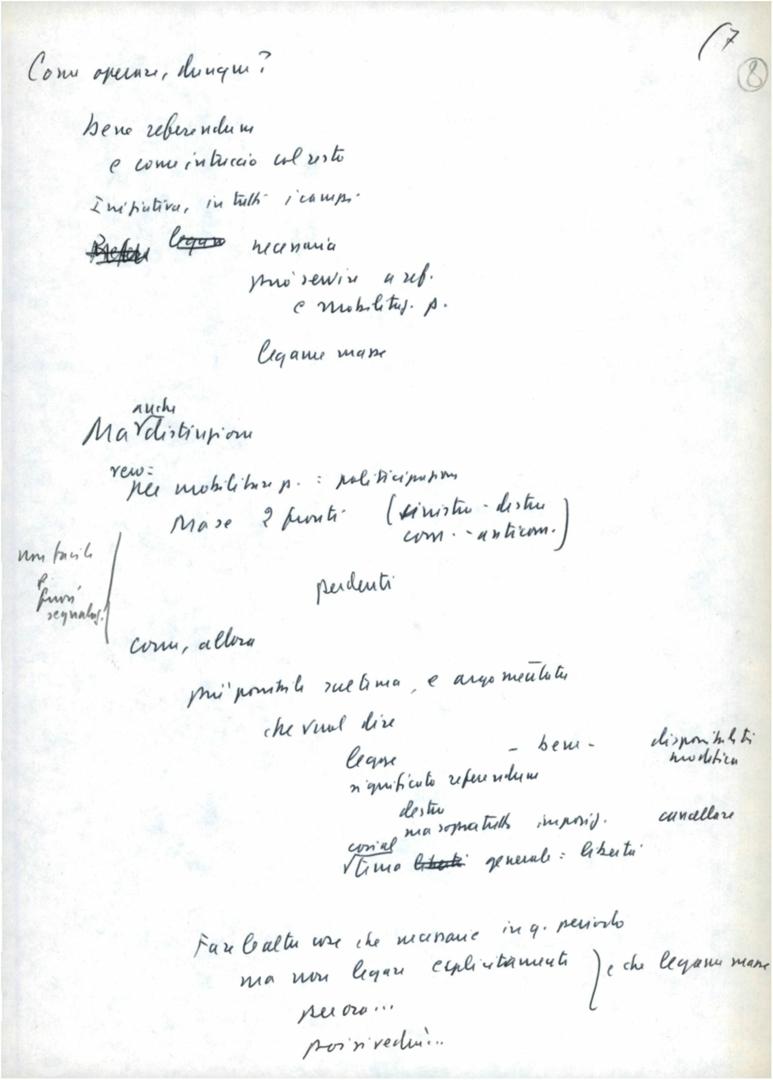 (7
8
Come operare, dunque?
bene referendum
e come intreccio col resto
Iniziativa, in tutti i campi
legare necessaria
può servire a ref.
e mobilitaz. p.
legame masse
anche
Ma distinzione
vero:
per mobilitare p. : politicizzazione
Ma se 2 fronti (sinistra - destra
com. - anticom.)
non facile
p.
fuori
segnalaz.
perdenti
come, allora
più possibile sul tema, e argomentata
che vuol dire
legge - bene - disponibilità
modifica
significato referendum
destra
ma soprattutto imposiz. cancellare
così al
tema libertà generale: libertà
Fare le altre cose che necessarie in q. periodo
ma non legare esplicitamente } e che legame masse
per ora...
poi si vedrà...